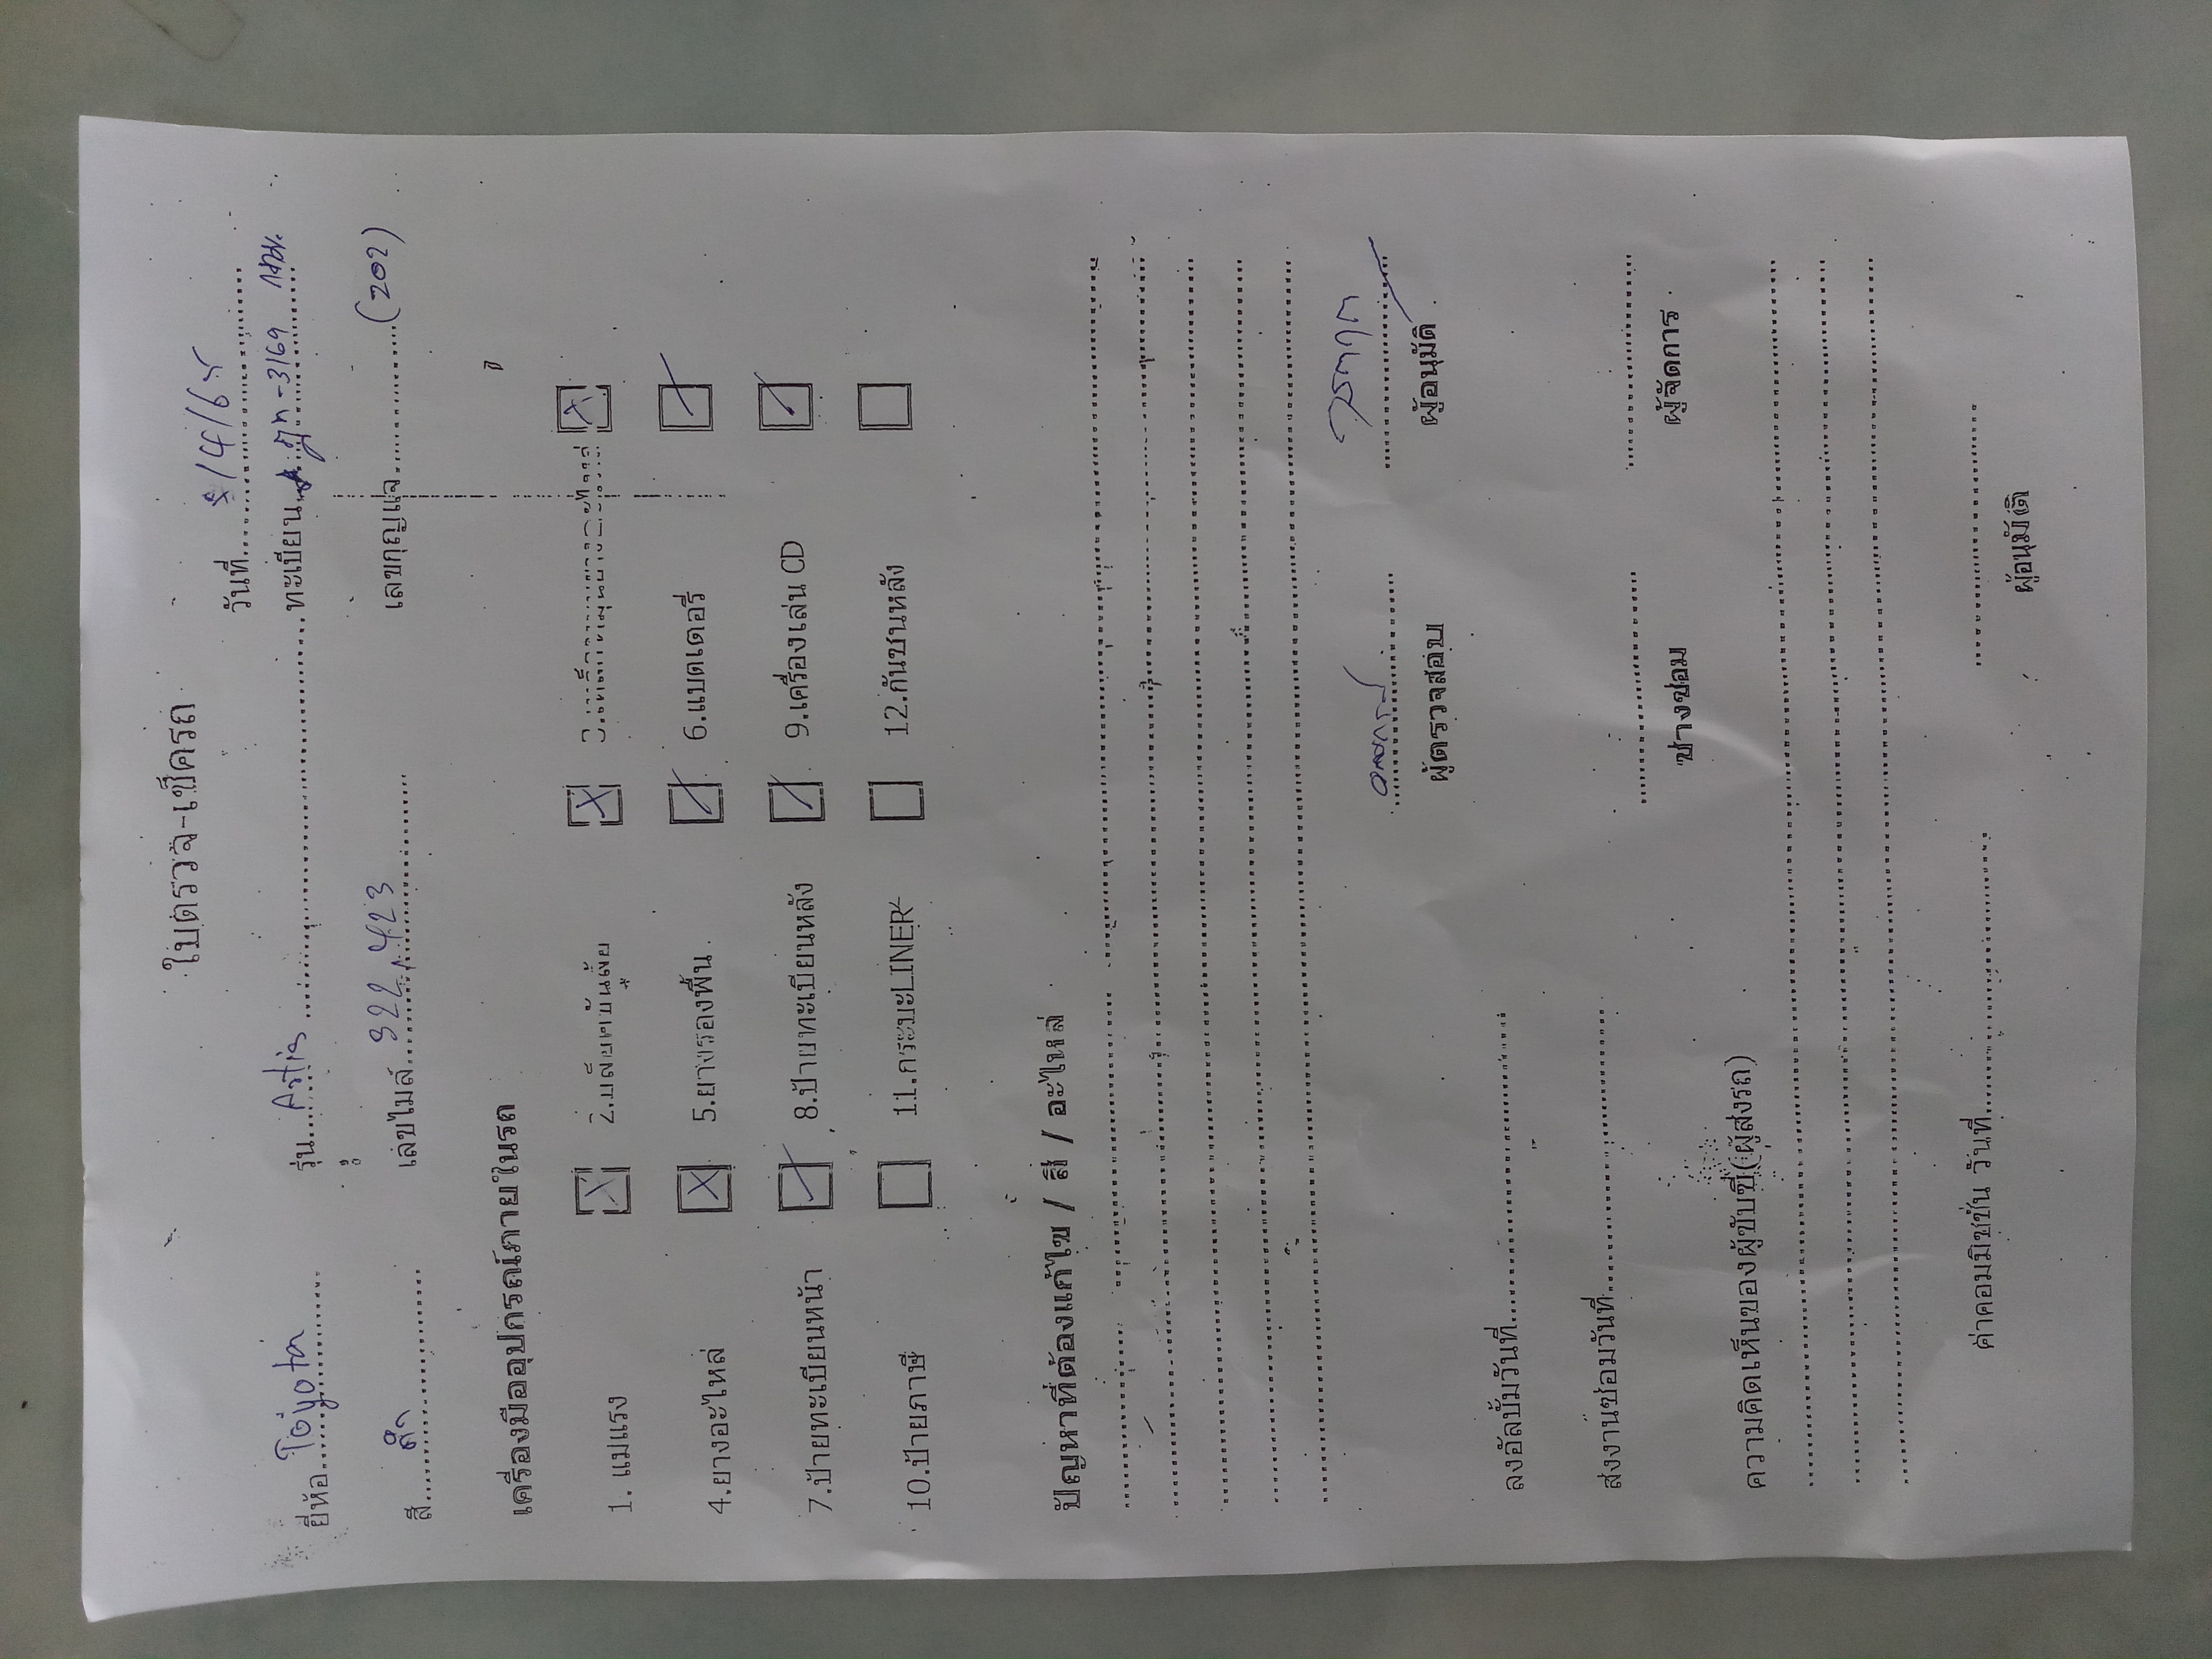 ใบตรวจ-เช็ครถ
วันที่
ยี่ห้อ Toyota รุ่น ทะเบียน -3169 กทม.
สี ดำ เลขไมล์ 322,423 เลขกุญแจ (202)
เครื่องมืออุปกรณ์ภายในรถ
1. แม่แรง 2.บล็อคขันล้อ
4.ยางอะไหล่ 5.ยางรองพื้น 6.แบตเตอรี่
7.ป้ายทะเบียนหน้า 8.ป้ายทะเบียนหลัง 9.เครื่องเล่น CD
10.ป้ายภาษี 11.กระบะLINER 12.กันชนหลัง
ปัญหาที่ต้องแก้ไข / สี / อะไหล่
ผู้ตรวจสอบ ผู้อนุมัติ
ลงอัลบั้มวันที่
ส่งงานซ่อมวันที่ ช่างซ่อม ผู้จัดการ
ความคิดเห็นของผู้ขับขี่(ผู้ส่งรถ)
ค่าคอมมิชชั่น วันที่
ผู้อนุมัติ